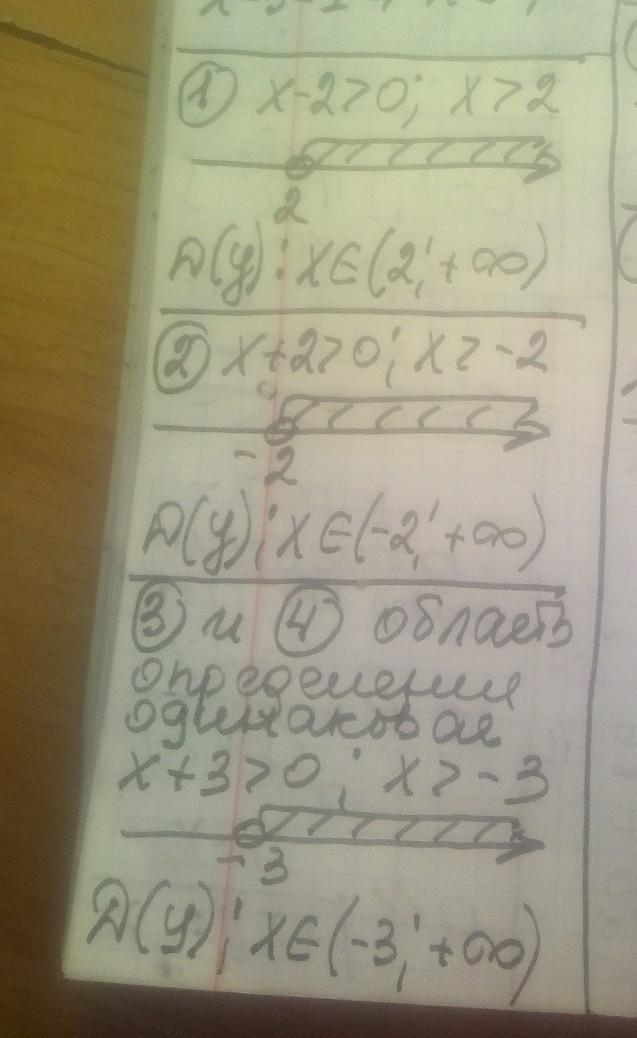 ① x-2>0; x>2
2
D(y): x∈(2;+∞)
② x+2>0; x>-2
-2
D(y): x∈(-2;+∞)
③ и ④ область
определения
одинаковая
x+3>0; x>-3
-3
D(y): x∈(-3;+∞)